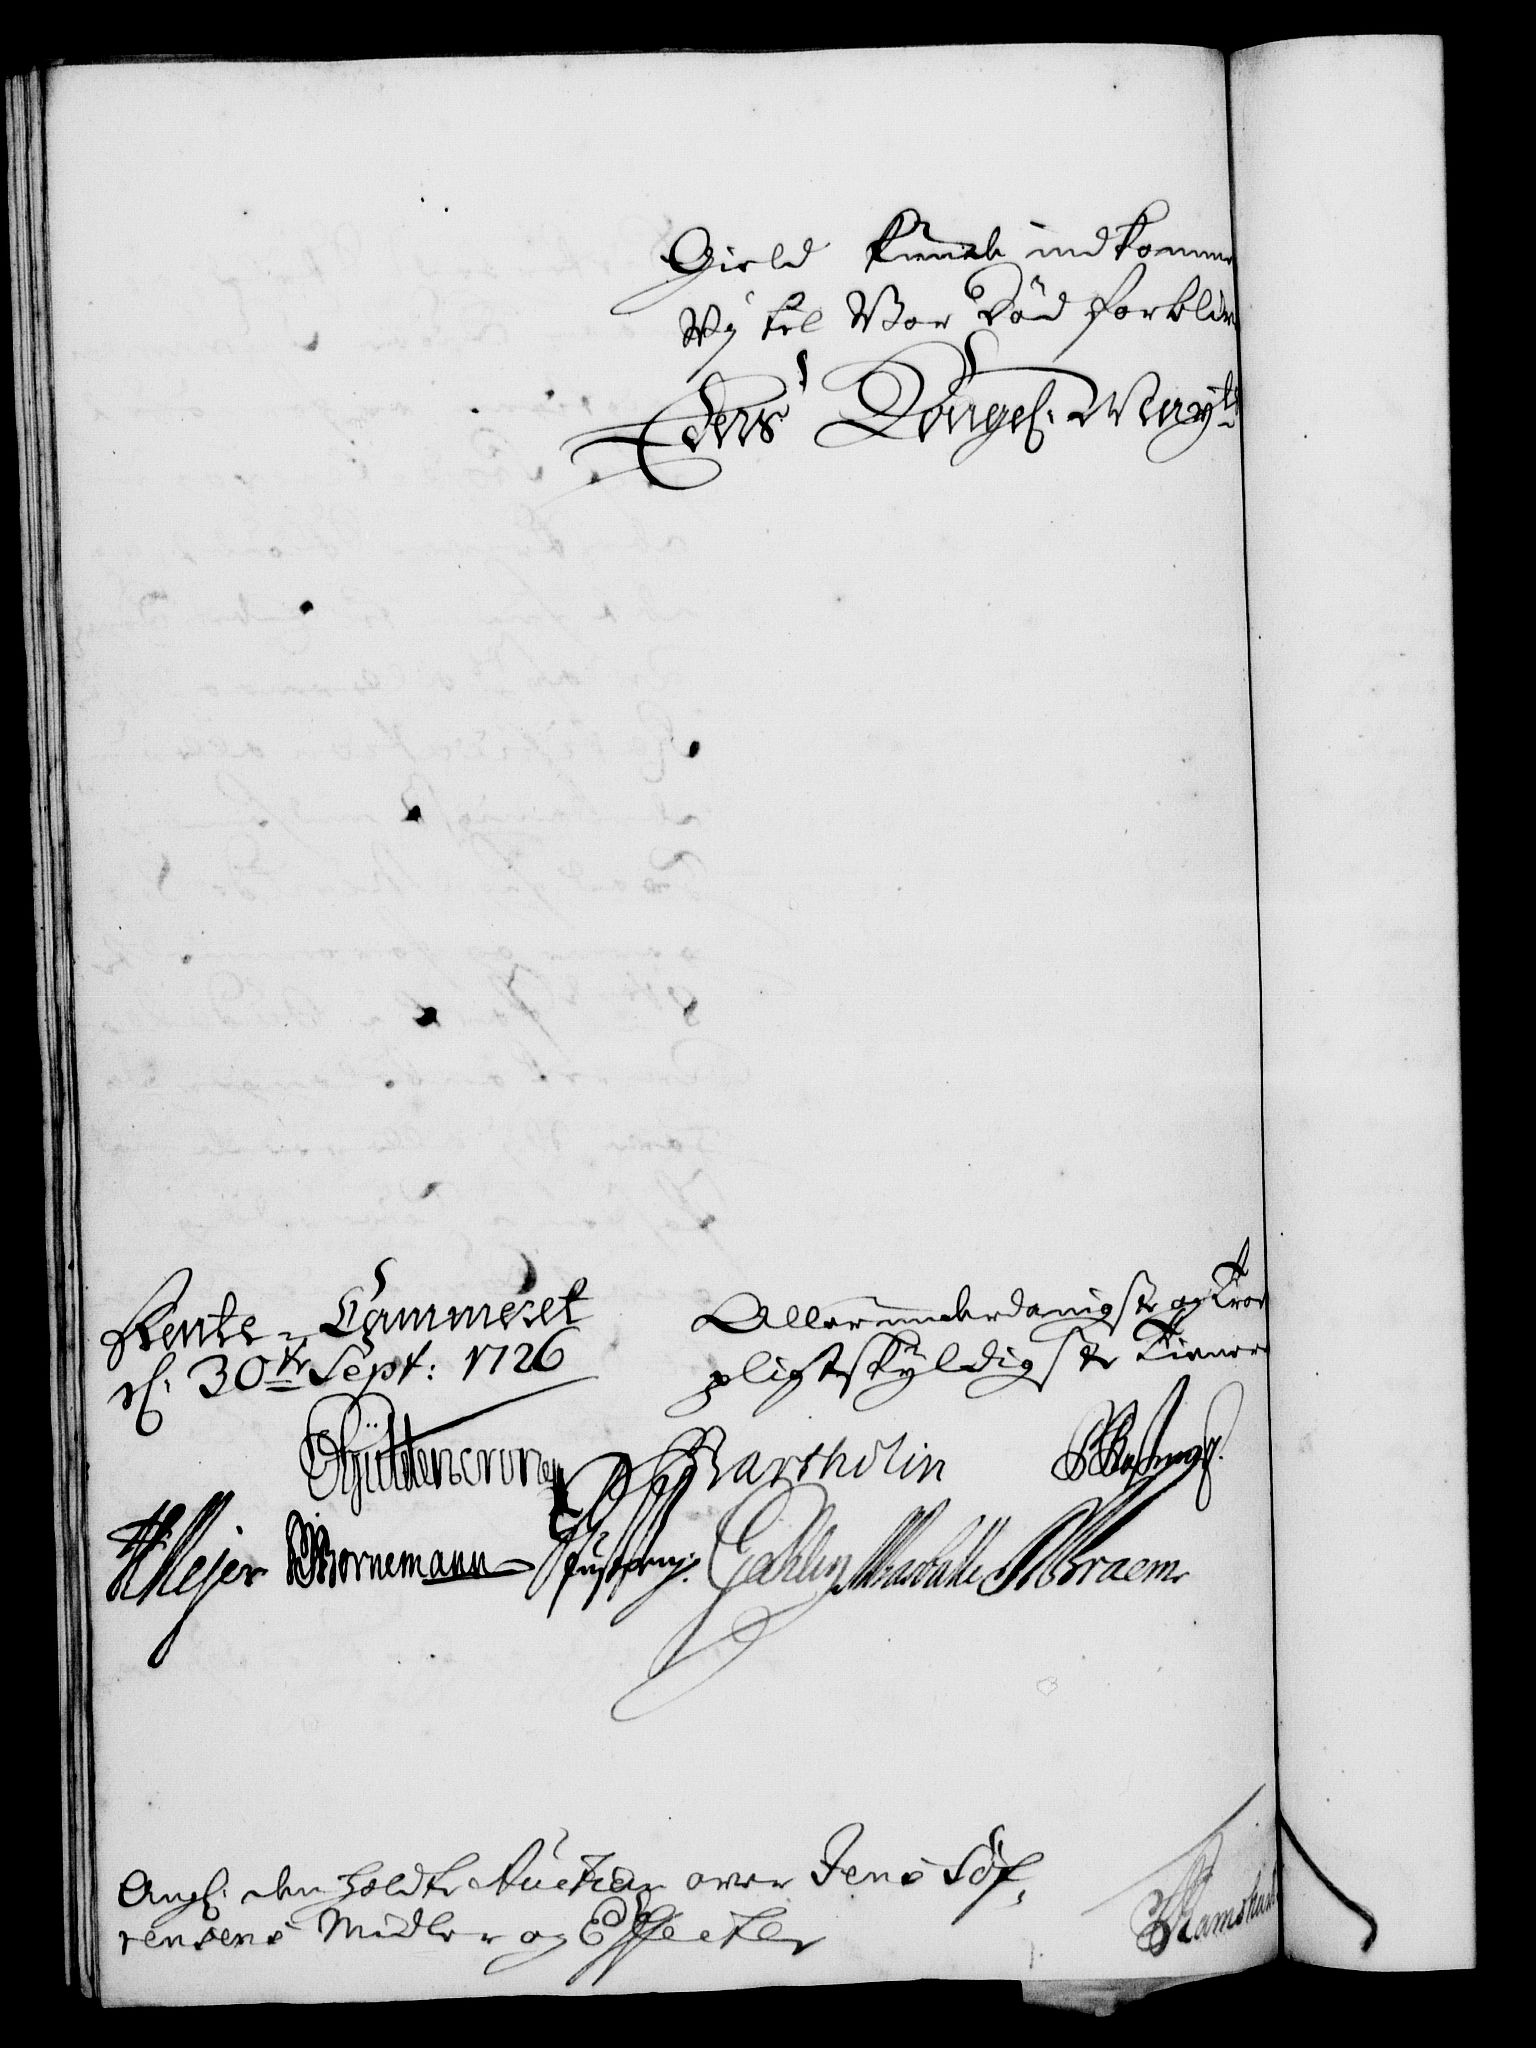 Gield kunde indkomme
Wj til Vor Död forblive
Eders Kongel. Mayts
Rente-Cammeret
d. 30te Sept: 1726
Allerunderdanigste og Troe
pligtskyldigste Tienere
Güldencrone Bartholin
WMejer Bornemann JBraem
Angl. den holdte Auction over Jens Söf-
rensens Midler og Effecter
Ramshart